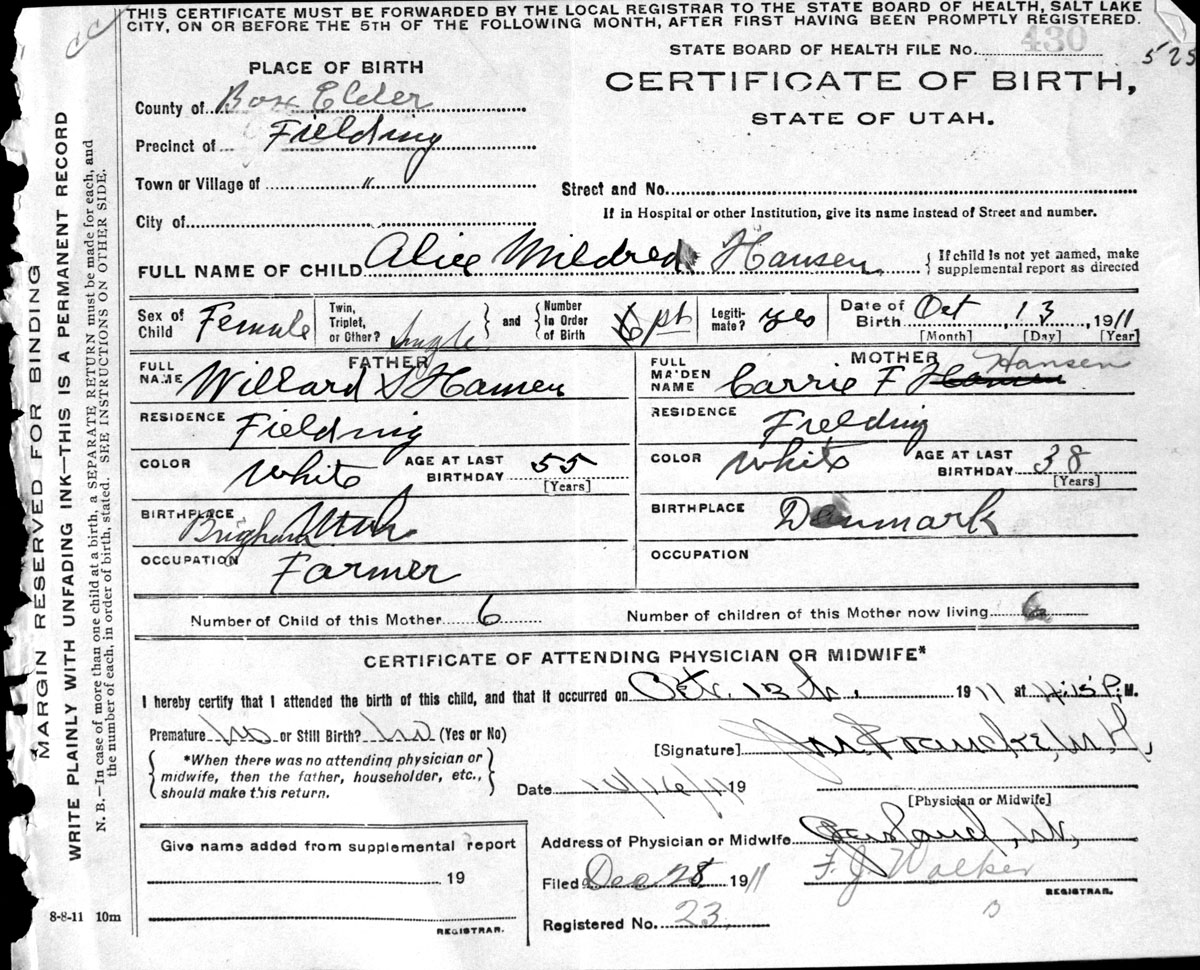 THIS CERTIFICATE MUST BE FORWARDED BY THE LOCAL REGISTRAR TO THE STATE BOARD OF HEALTH, SALT LAKE
CITY, ON OR BEFORE THE 5TH OF THE FOLLOWING MONTH, AFTER FIRST HAVING BEEN PROMPTLY REGISTERED.
STATE BOARD OF HEALTH FILE No. 430
525
PLACE OF BIRTH
CERTIFICATE OF BIRTH,
STATE OF UTAH.
County of Box Elder
Precinct of Fielding
Town or Village of "
Street and No.
City of
If in Hospital or other Institution, give its name instead of Street and number.
FULL NAME OF CHILD Alice Mildred Hansen
If child is not yet named, make
supplemental report as directed
Sex of Child Female
Twin, Triplet, or Other? Single
and
Number In Order of Birth 6
Legiti-mate? yes
Date of Birth Oct 13, 1911
[Month] [Day] [Year]
FATHER
FULL NAME Willard S Hansen
RESIDENCE Fielding
COLOR White AGE AT LAST BIRTHDAY 55
[Years]
BIRTHPLACE Brigham Utah
OCCUPATION Farmer
MOTHER
FULL MAIDEN NAME Carrie F Hansen
RESIDENCE Fielding
COLOR White AGE AT LAST BIRTHDAY 38
[Years]
BIRTHPLACE Denmark
OCCUPATION
Number of Child of this Mother 6 Number of children of this Mother now living 6
CERTIFICATE OF ATTENDING PHYSICIAN OR MIDWIFE*
I hereby certify that I attended the birth of this child, and that it occurred on Oct. 13th, 1911 at 4:15 P. M.
Premature No or Still Birth? No (Yes or No)
*When there was no attending physician or
midwife, then the father, householder, etc.,
should make this return.
[Signature] Francke, M.D.
Date 10/16/11 19
[Physician or Midwife]
Address of Physician or Midwife Garland, Ut,
Give name added from supplemental report
19
REGISTRAR.
Filed Dec 28 1911 F. J. Walker
REGISTRAR.
Registered No. 23
8-8-11 10m
MARGIN RESERVED FOR BINDING
WRITE PLAINLY WITH UNFADING INK—THIS IS A PERMANENT RECORD
N. B.—In case of more than one child at a birth, a SEPARATE RETURN must be made for each, and
the number of each, in order of birth, stated. SEE INSTRUCTIONS ON OTHER SIDE.